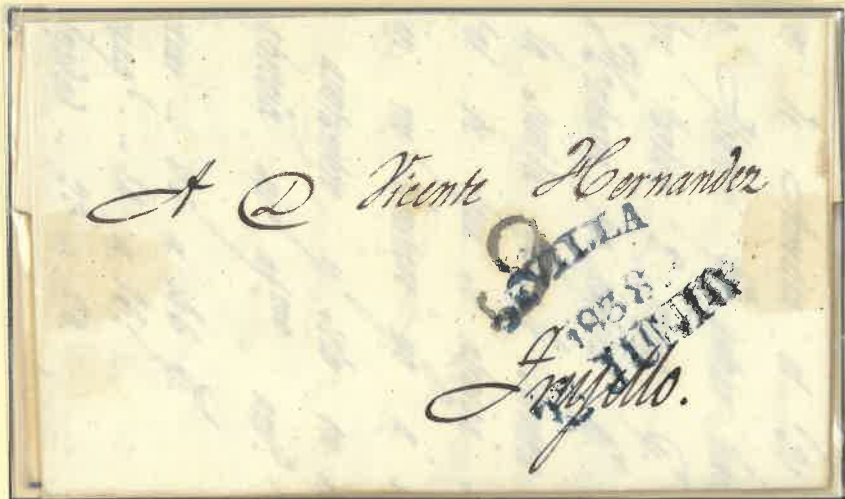 A D Vicente Hernandez
9
SEVILLA
1838
JUNIO
Trujillo.